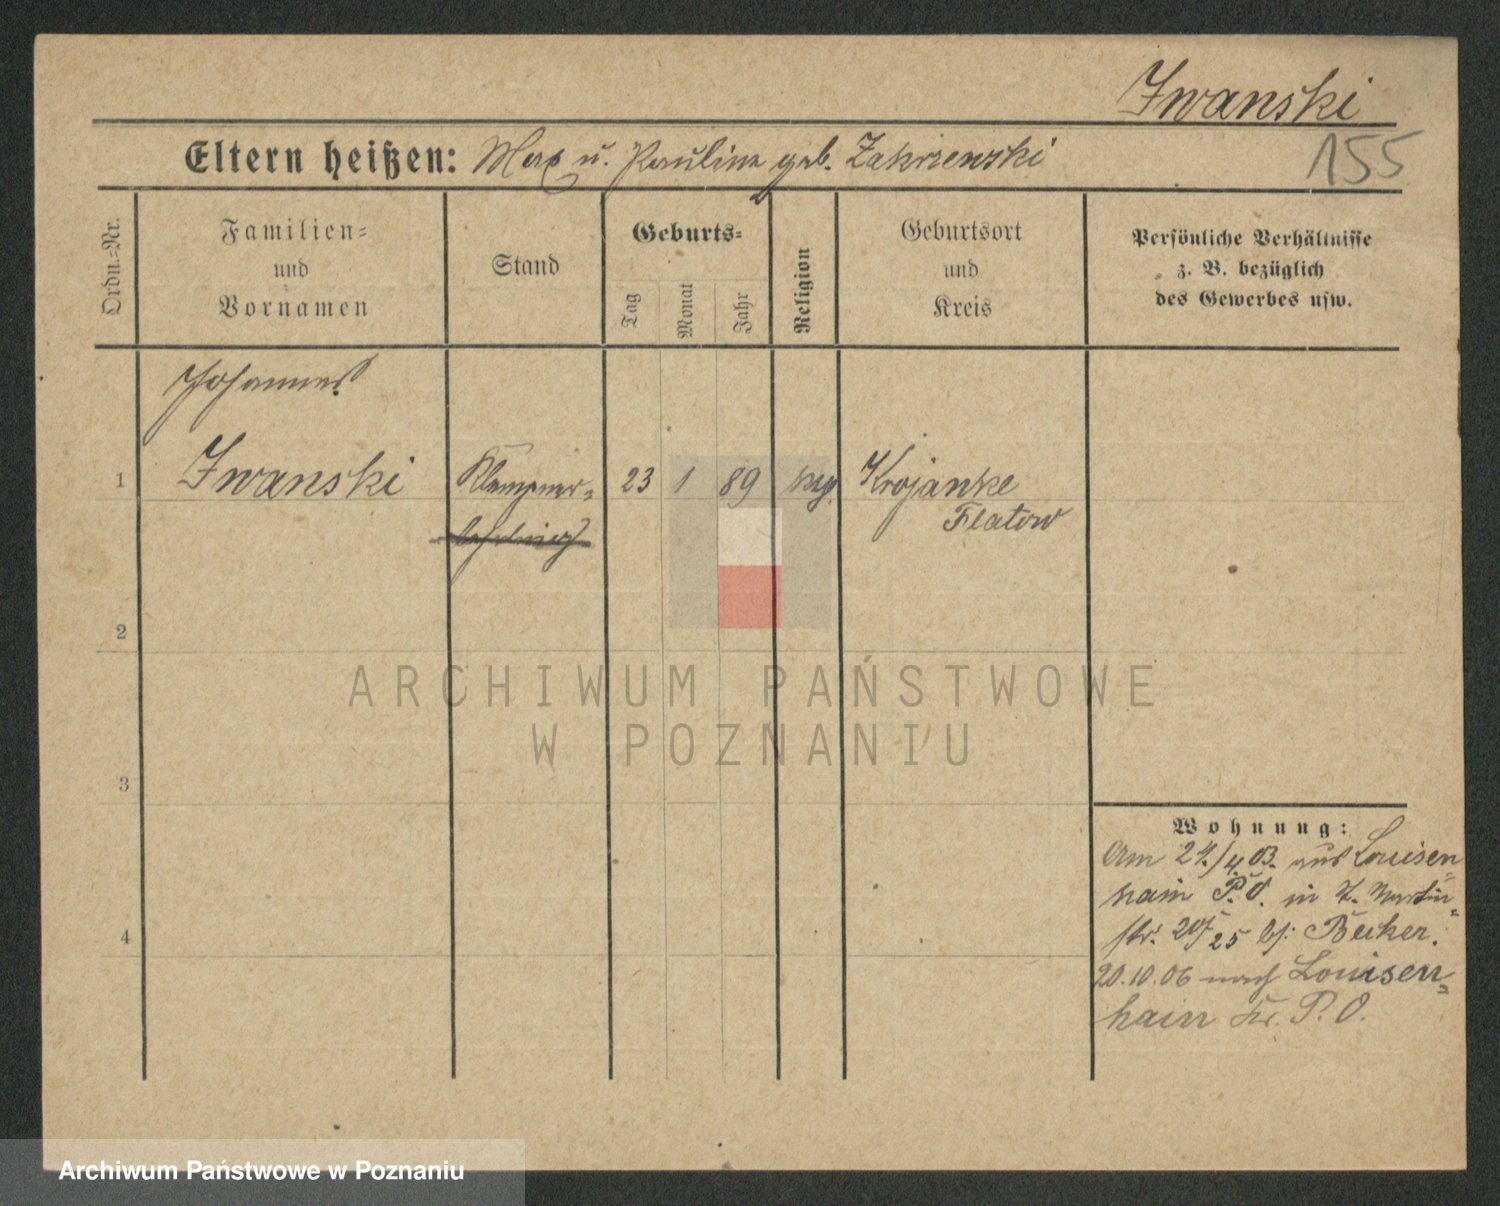 Iwanski
155
Eltern heißen: Max u. Pauline geb. Zakrzewski
Ordn.-Nr.
Familien-
und
Vornamen
Stand
Geburts-
Tag
Monat
Jahr
Religion
Geburtsort
und
Kreis
Persönliche Verhältnisse
z. B. bezüglich
des Gewerbes usw.
Johannes
1
Iwanski
Klempner-
lehrling
23
1
89
Krojanke
Flatow
2
3
4
Wohnung:
Am 24./4.03. aus Louisen
hain P.O. in St. Martin
str. 20/25 bei Becker.
20.10.06 nach Louisen-
hain Kr. P.O.
ARCHIWUM PAŃSTWOWE
W POZNANIU
Archiwum Państwowe w Poznaniu